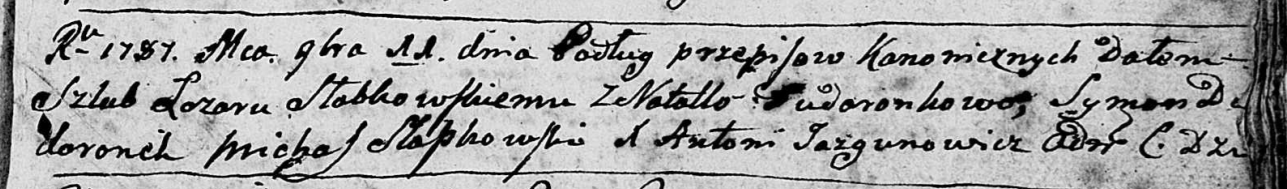 Ru 1787. Mca. 9bra 11. dnia Podług przepisow Kanonicznych Dałem
Szlub Łozaru Słabkowskiemu Z Natallo Sudoronkowo, Symon
doronek Michaś Słapkowski i Antoni Jazgunowicz